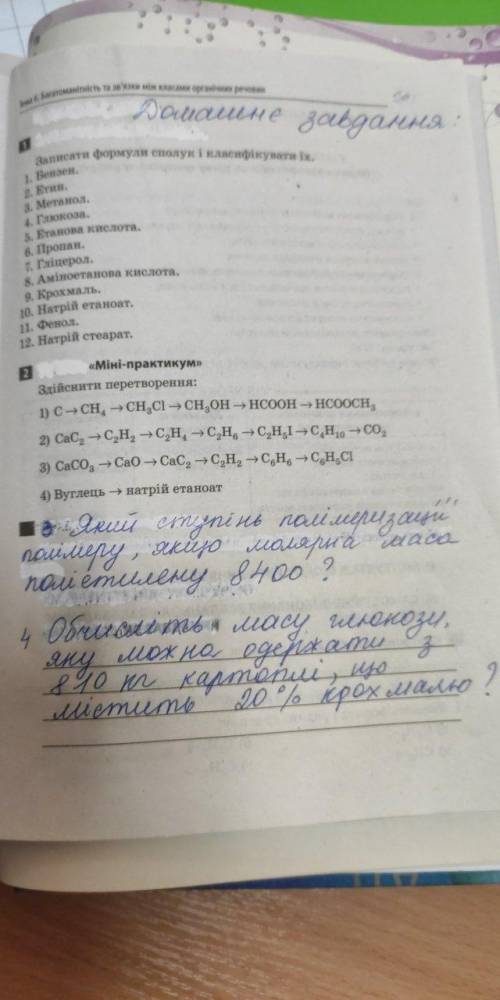 Тема 6. Багатоманітність та зв'язки між класами органічних речовин
Домашнє завдання:
1
Записати формули сполук і класифікувати їх.
1. Бензен.
2. Етин.
3. Метанол.
4. Глюкоза.
5. Етанова кислота.
6. Пропан.
7. Гліцерол.
8. Аміноетанова кислота.
9. Крохмаль.
10. Натрій етаноат.
11. Фенол.
12. Натрій стеарат.
2 «Міні-практикум»
Здійснити перетворення:
1) C → CH₄ → CH₃Cl → CH₃OH → HCOOH → HCOOCH₃
2) CaC₂ → C₂H₂ → C₂H₄ → C₂H₆ → C₂H₅I → C₄H₁₀ → CO₂
3) CaCO₃ → CaO → CaC₂ → C₂H₂ → C₆H₆ → C₆H₅Cl
4) Вуглець → натрій етаноат
3 Який ступінь полімеризації
полімеру, якщо молярна маса
поліетилену 8400?
4 Обчисліть масу глюкози,
яку можна одержати з
810 кг картоплі, що
містить 20% крохмалю?